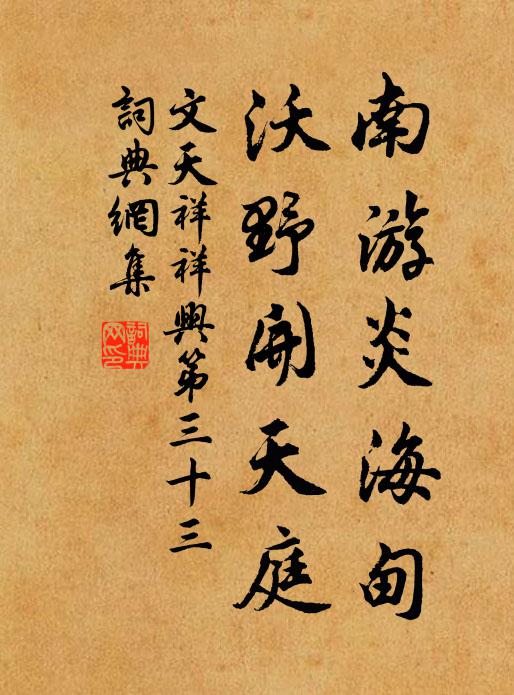 南游炎海甸
沃野開天庭
文天祥祥興第三十三
詞典網集
詞典网印